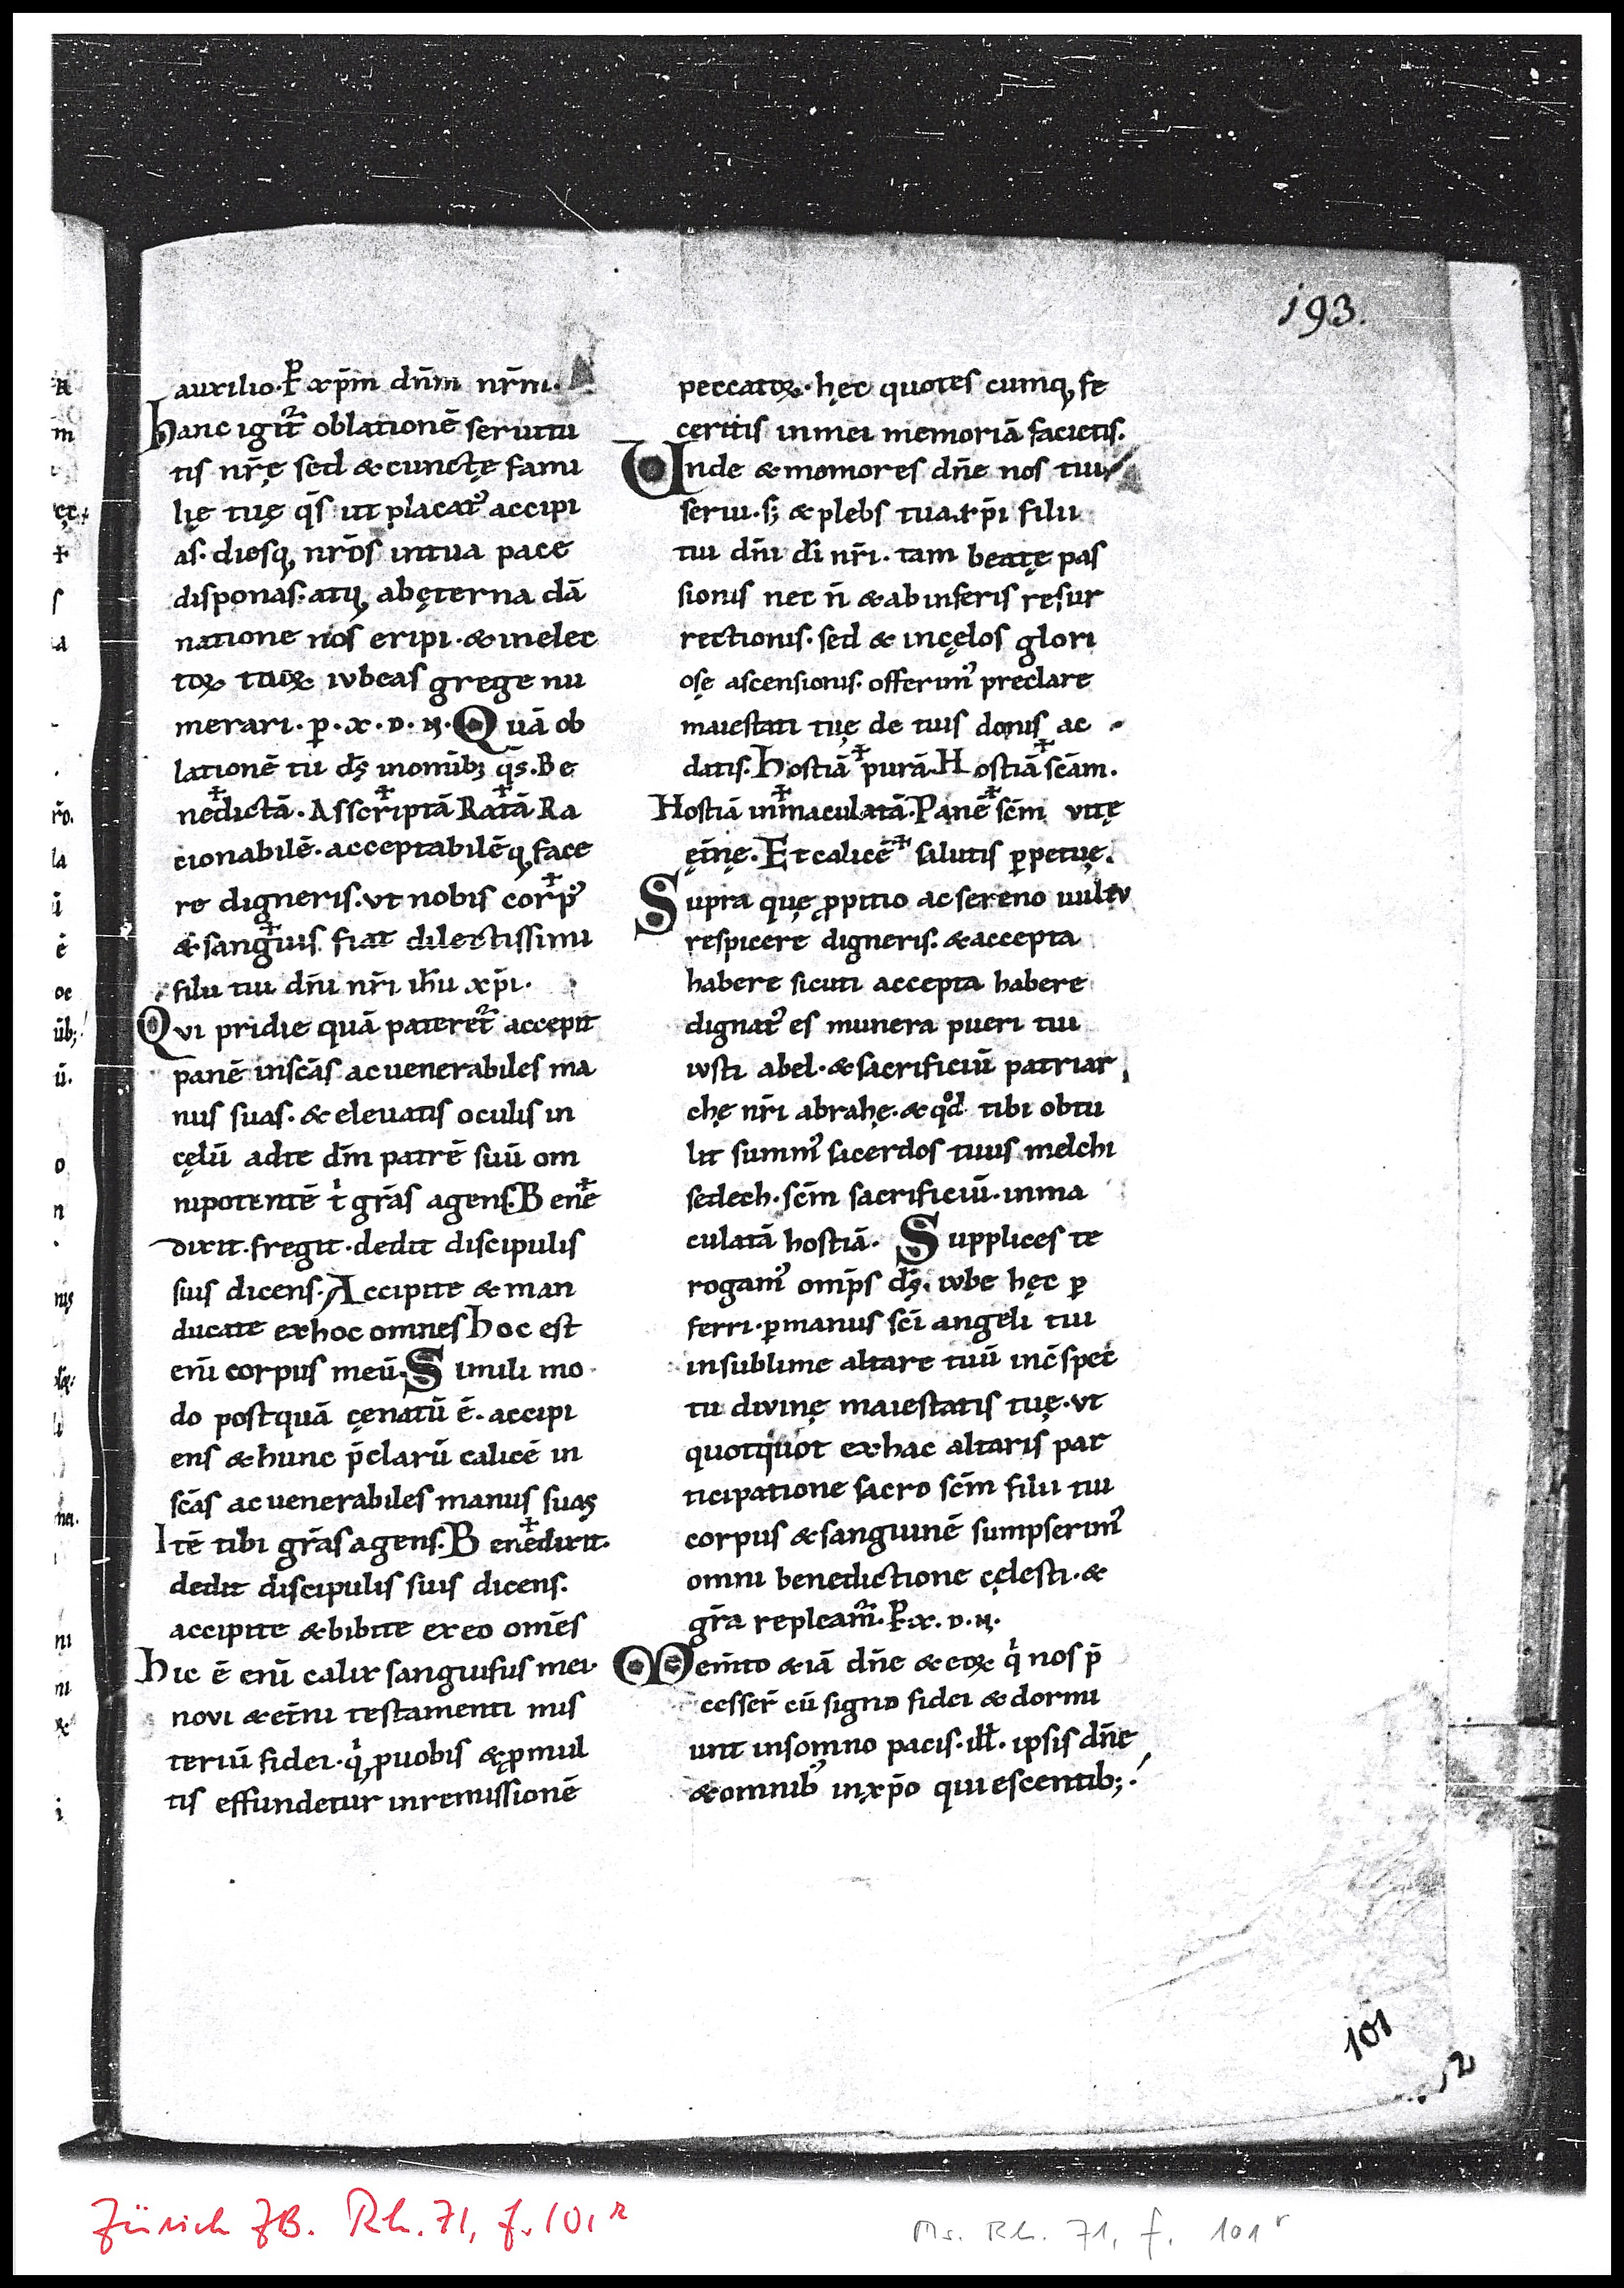 193.
auxilio. P xp̄m dn̄m nr̄m.
Hanc igit᷑ oblationē seruitu
tis nr̄ę sed & cunctę fami
lię tuę q̄s ut placatꝰ accipi
as. diesq, nr̄os intua pace
disponas. atq, abęterna dā
natione nos eripi. & inelec
toꝝ tuoꝝ iubeas grege nu
merari. p. x. d. n. Quā ob
lationē tu ds inomīb; q̄s. Be
ne✝dictā. Asscri✝ptā Ra✝tā Ra
cionabilē. acceptabilēq, face
re digneris. vt nobis cor✝pꝰ
& san✝guis fiat dilectissimi
filii tui dn̄i nr̄i ih̄u xp̄i.
Qvi pridie quā pateret᷑ accepit
panē inscās ac uenerabiles ma
nus suas. & eleuatis oculis in
cęlū adte dm̄ patrē suū om
nipotentē tͥ grās agens. Bene✝
dixit. fregit. dedit discipulis
suis dicens. Accipite & man
ducate exhoc omnes hoc est
eni̅ corpus meū. Simili mo
do postquā cęnatū ē. accipi
ens & hunc p̄clarū calicē in
scās ac uenerabiles manus suas
Itē tibi grās agens. Bene✝dixit.
dedit discipulis suis dicens.
accipite & bibite exeo om̄es
Hic ē eni̅ calix sanguisus mei.
novi & et̄ni testamenti mis
teriū fidei. qͥ, puobis & ꝓmul
tis effundetur inremissionē
peccatoꝝ. hęc quotes cumq, fe
ceritis inmei memoriā facietis.
Unde & momores dn̄e nos tui
serui. s; & plebs tua. xp̄i filii
tui dn̄i di̅ nr̄i. tam beatę pas
sionis nec n̄ & abinferis resur
rectionis. sed & incęlos glori
osę ascensionis. offerimꝰ preclare
maiestati tuę de tuis donis ac
datis. Hostiā ✝ purā. Hostiā ✝ scām.
Hostiā in✝maculatā. Panē ✝ scm̄ vitę
ęt̄nę. Et calicē ✝ salutis ꝑpetuę.
Supra quę ꝓpitio ac sereno uultv
respicere digneris. & accepta
habere sicuti accepta habere
dignatꝰ es munera pueri tui
iusti abel. & sacrificiū patriar
chę nr̄i abrahę. & qd̊ tibi obtu
lit summꝰ sacerdos tuus melchi
sedech. scm̄ sacrificiū. inma
culatā hostiā. Supplices te
rogamꝰ omp̄s ds. iube hęc ꝑ
ferri. ꝑmanus sci̅ angeli tui
insublime altare tuū inc̄spec
tu divinę maiestatis tuę. vt
quotquot exhac altaris par
ticipatione sacro scm̄ filii tui
corpus & sanguinē sumpserimꝰ
omni benedictione cęlesti. &
gr̄a repleam᷑. P. x. d. n.
Mem̄to & iā dn̄e & eoꝝ qͥ nos p̄
cesser̄ cū signo fidei & dormi
unt insomno pacis. ill̄. ipsis dn̄e
& omnibꝰ inxp̄o quiescentib;.
101
Zürich ZB. Rh. 71, f. 101r
Ms. Rh. 71, f. 101r